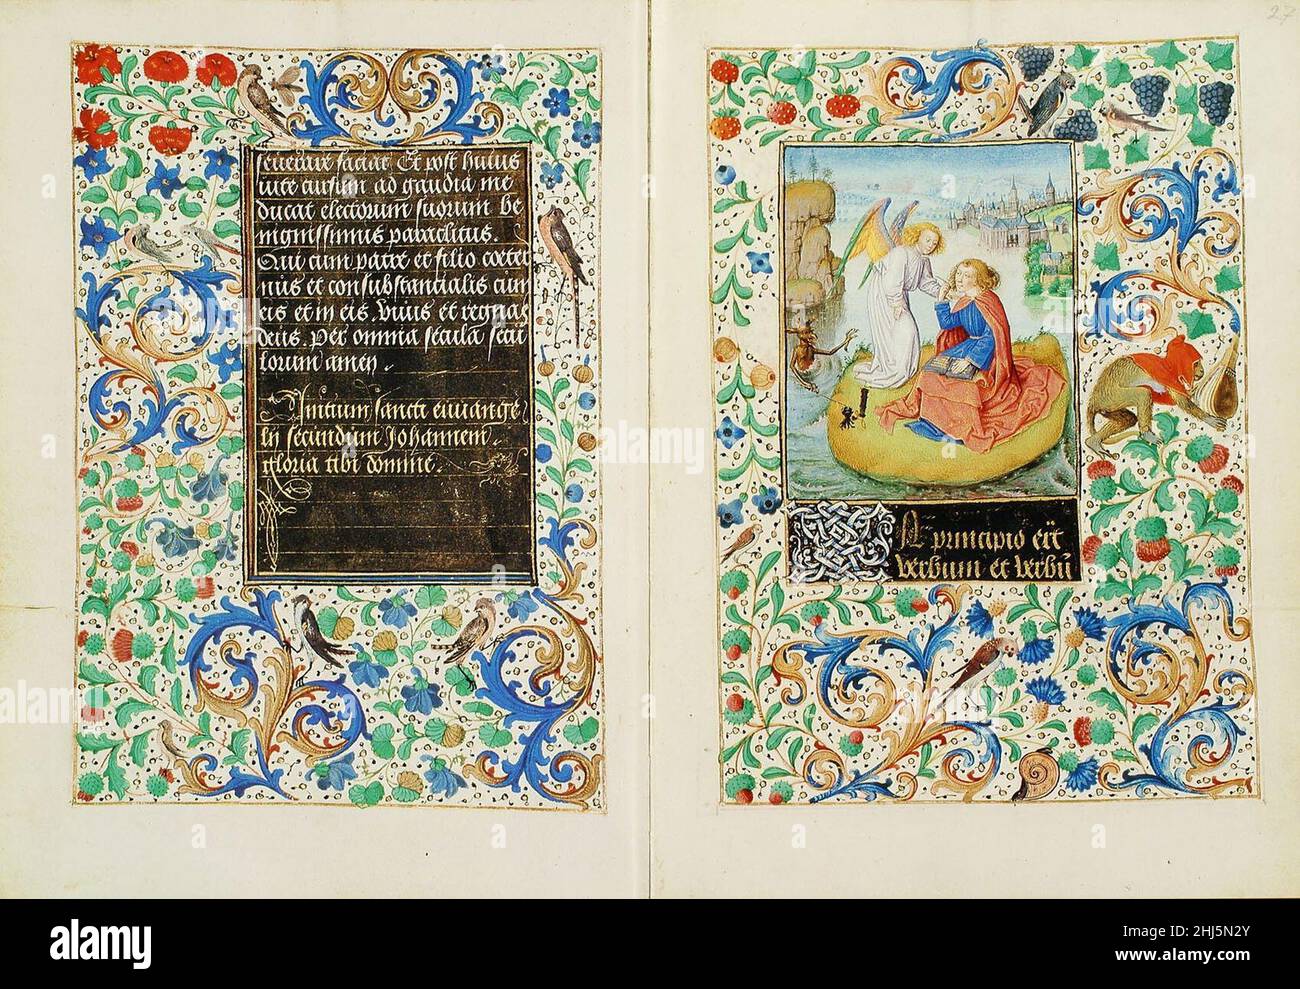 seuerare faciat Et post huius
vite cursum ad gaudia me
ducat electorum suorum be
nignissimus paraclitus.
Qui cum patre et filio coeter
nus et consubstantialis cum
eis et in eis. viuis et regnas
deus. per omnia secula secu
lorum amen.
Initium sancti euuange
lii secundum Johannem.
gloria tibi domine.
27
In principio erat
verbum et verbu
alamy
alamy
Image ID: 2HJ5N2Y
www.alamy.com